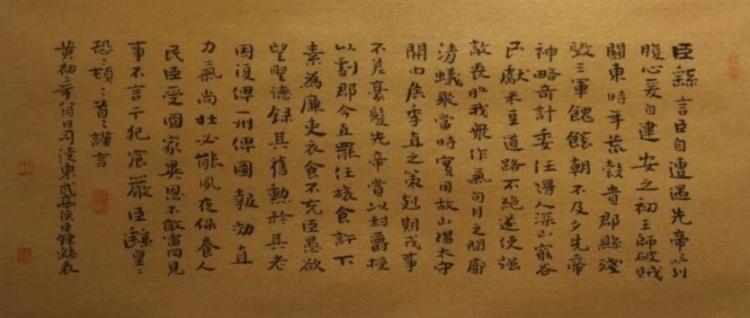 臣繇言臣自遭遇先帝忝列
腹心爰自建安之初王師破賊
關東時年荒穀貴郡縣殘
毀三軍餽饟朝不及夕先帝
神略奇計委任得人深山窮谷
民獻米豆道路不絕遂使强
敵喪膽我眾作氣旬月之間廓
清蟻聚當時實用故山陽太守
關內侯季直之策剋期成事
不差豪髮先帝賞以封爵授
以劇郡今直罷任旅食許下
素為廉吏衣食不充臣愚欲
望聖德錄其舊勳矜其老
困復俾一州俾圖報効直
力氣尚壯必能夙夜保養人
民臣受國家異恩不敢雷同見
事不言干犯宸嚴臣繇皇〻
恐〻頓〻首〻謹言
黃初二年八月日司徒東武亭侯臣鍾繇表